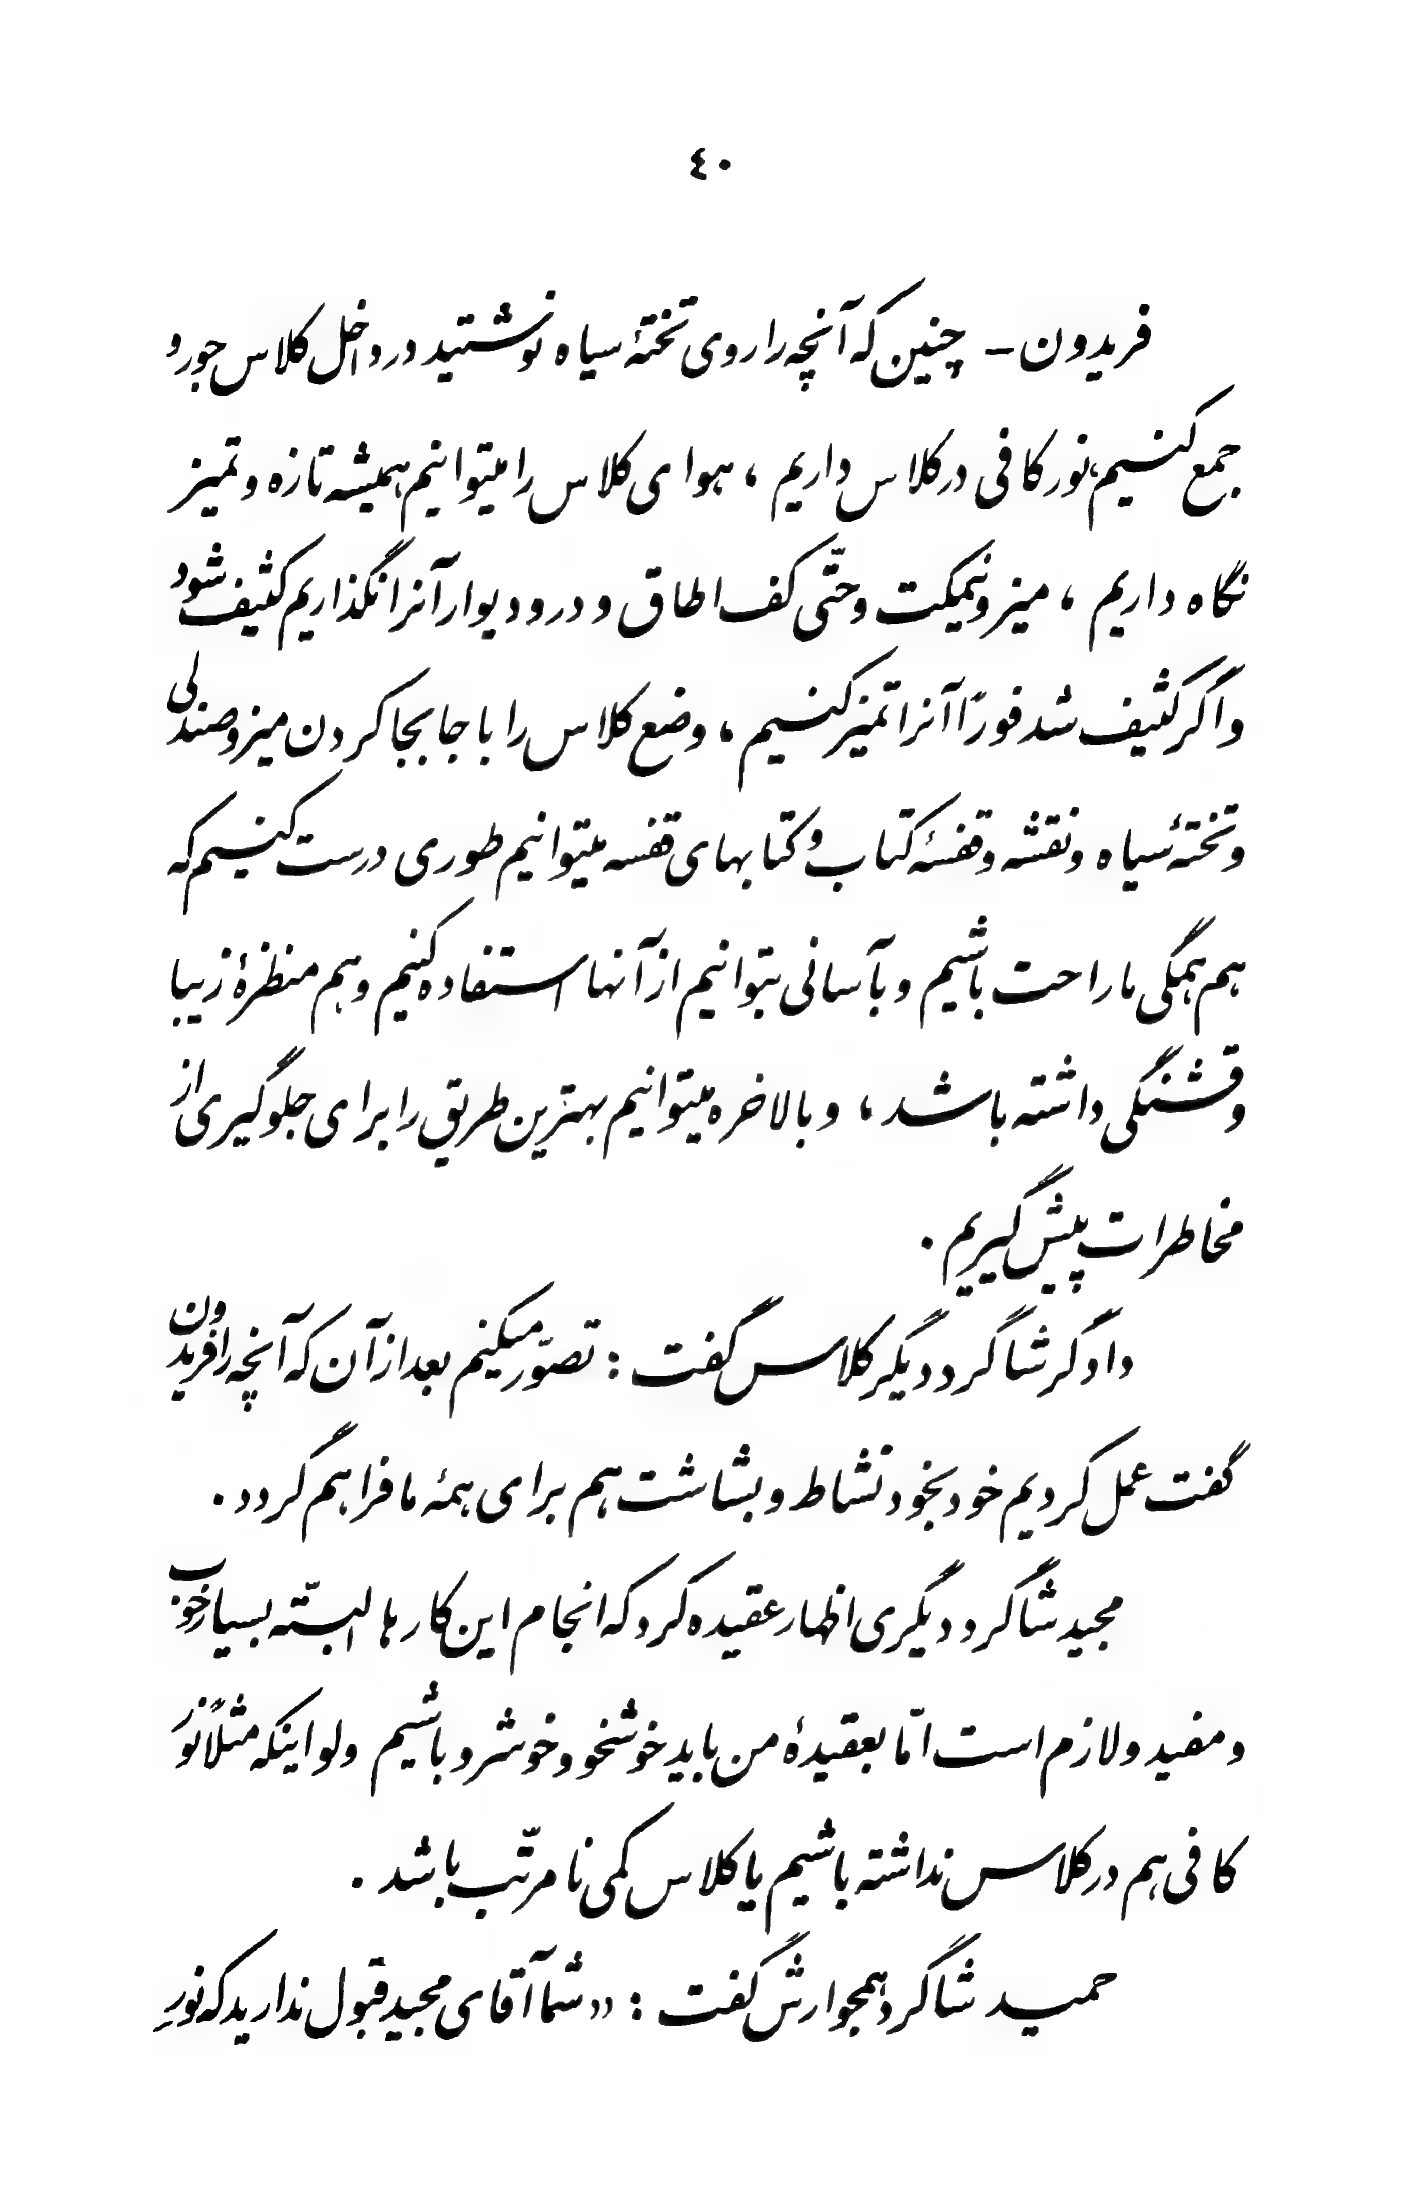 ٤٠
فریدون - چنین که آنچه را روی تختهٔ سیاه نوشتید در داخل کلاس جور و
جمع کنیم، نور کافی در کلاس داریم ، هوای کلاس را میتوانیم همیشه تازه و تمیز
نگاه داریم ، میز و نیمکت و حتّی کف اطاق و در و دیوار آنرا نگذاریم کثیف شود
و اگر کثیف شد فوراً آنرا تمیز کنیم ، وضع کلاس را با جابجا کردن میز و صندلی
و تختهٔ سیاه و نقشه و قفسهٔ کتاب و کتابهای قفسه میتوانیم طوری درست کنیم که
هم همگی ما راحت باشیم و بآسانی بتوانیم از آنها استفاده کنیم و هم منظرهٔ زیبا
و قشنگی داشته باشد ، و بالاخره میتوانیم بهترین طریق را برای جلوگیری از
مخاطرات پیش گیریم .
دادگر شاگرد دیگر کلاس گفت : تصوّر میکنیم بعد از آن که آنچه را فریدون
گفت عمل کردیم خود بخود نشاط و بشاشت هم برای همهٔ ما فراهم گردد .
مجید شاگرد دیگری اظهار عقیده کرد که انجام این کارها البتّه بسیار خوب
و مفید و لازم است امّا بعقیدهٔ من باید خوشخو و خوشرو باشیم ولو اینکه مثلاً نور
کافی هم در کلاس نداشته باشیم یا کلاس کمی نامرتّب باشد .
حمید شاگرد همجوارش گفت : «شما آقای مجید قبول ندارید که نورِ